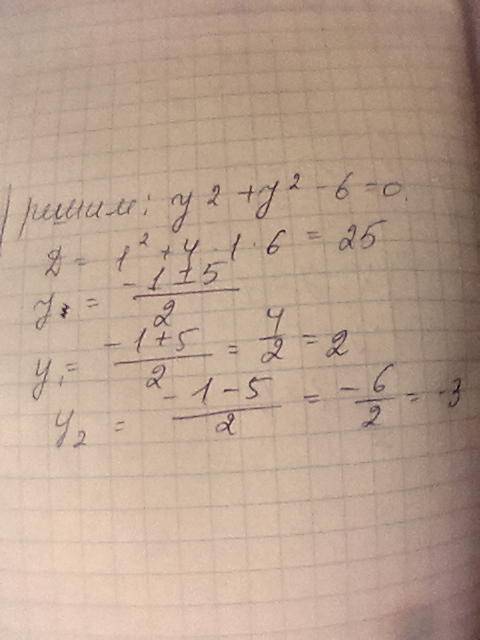 решим: y² + y² - 6 = 0.
D = 1² + 4 · 1 · 6 = 25
y = (-1 ± 5)/2
y₁ = (-1+5)/2 = 4/2 = 2
y₂ = (-1-5)/2 = -6/2 = -3